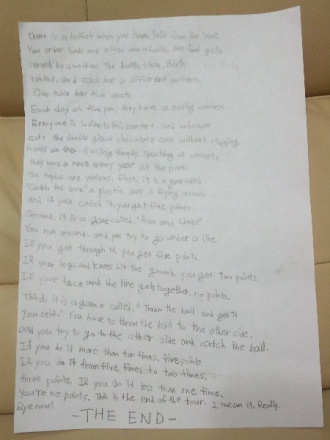 There is a buffet when you
You order food and after one minute, the food gets
served by a machine. The buffet has thirty
tables, and each has a different pattern.
One table has five seats.
Each day at five pm, they have a eating contest.
Everyone is invited to this contest, and whoever
eats the double giant chocolate cake without
in
they have a race every year at the park.
The topics are various. First, it is a game called
"Catch the bird." A plastic bird is flying around
and if you catch it, you get five points.
Second, it is a game called, "Run and limbo."
You run around, and you try to go under a line.
If you get through it you get five points.
If your legs and knees hit the ground, you get two points.
If your face and the line gets together, no points.
Third, it is a game called, "Throw the ball and get it
yourself." You have to throw the ball to the other side,
and you try to go to the other side and catch the ball.
If you do it more than ten times, five points
If you do it from five times to two times,
three points. If you do it less than one time,
You're no points. This is the end of the tour. I mean it. Really.
Bye now!
-THE END-